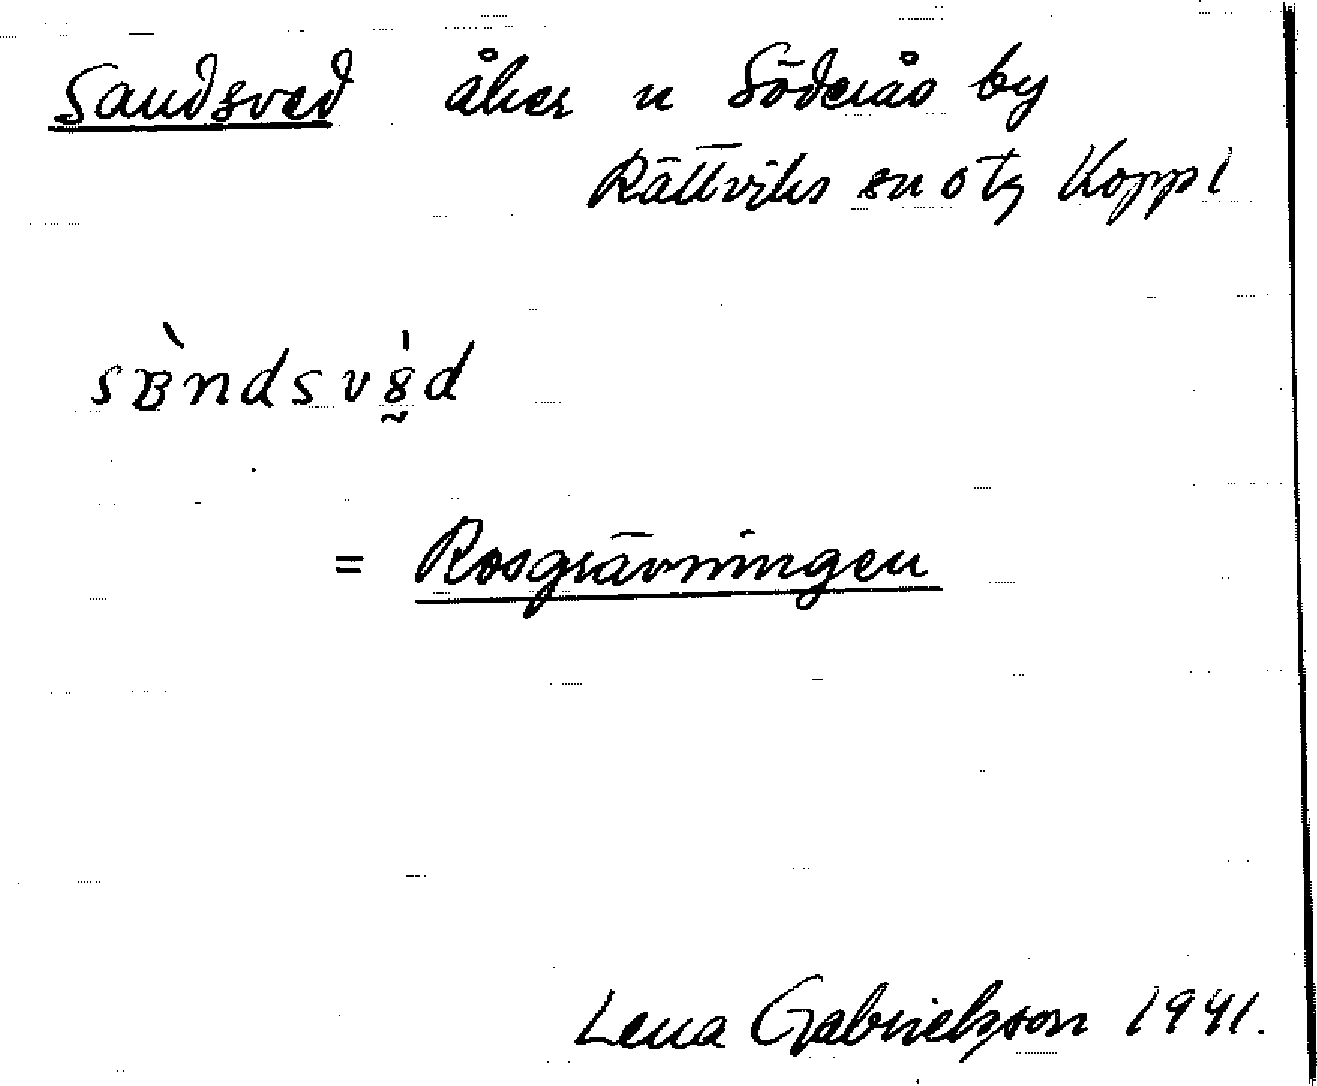 Sandsved åker n Söderås by
Rättviks sn o tg Koppl
sʙ̀ndsv8̰̍d
= Rosgrävningen
Lena Gabrielsson 1941.